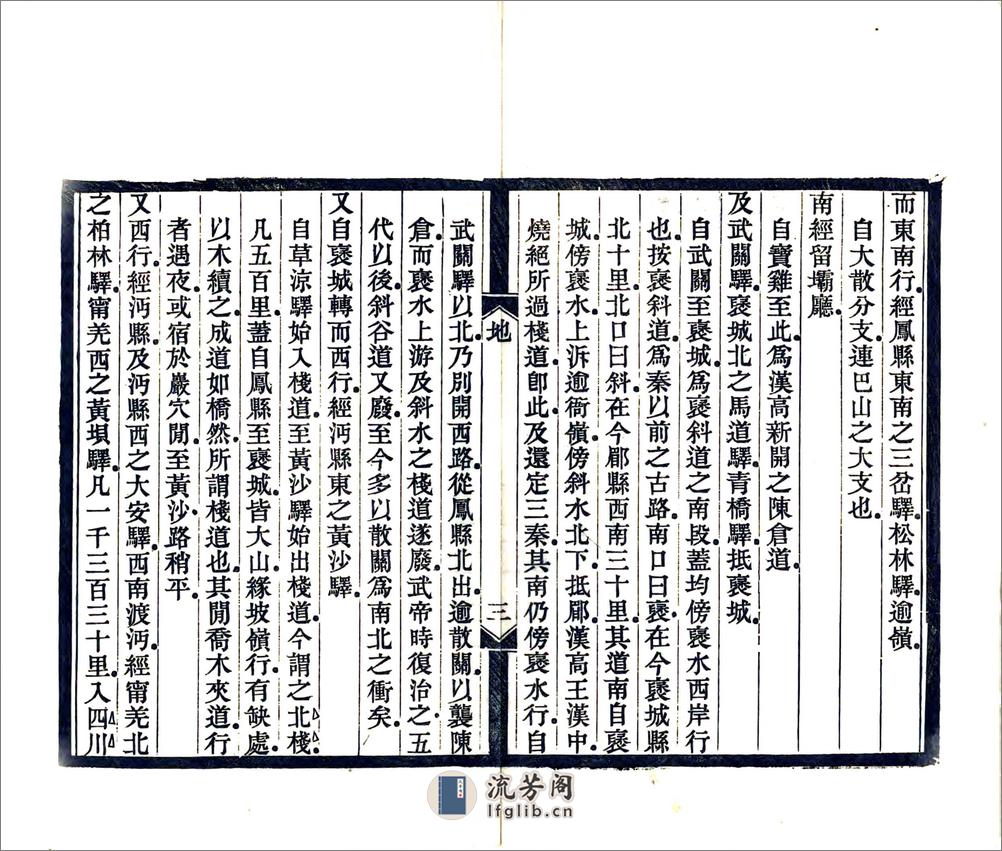 而東南行經鳳縣東南之三岔驛松林驛逾嶺
自大散分支連巴山之大支也
南經留壩廳
自寶雞至此爲漢高新開之陳倉道
及武關驛褒城北之馬道驛青橋驛抵褒城
自武關至褒城爲褒斜道之南段蓋均傍褒水西岸行
也按褒斜道爲秦以前之古路南口曰褒在今褒城縣
北十里北口曰斜在今郿縣西南三十里其道南自褒
城傍褒水上泝逾衙嶺傍斜水北下抵郿漢高王漢中
燒絕所過棧道卽此及還定三秦其南仍傍褒水行自
地
三
武關驛以北乃別開西路從鳳縣北出逾散關以襲陳
倉而褒水上游及斜水之棧道遂廢武帝時復治之五
代以後斜谷道又廢至今多以散關爲南北之衝矣
又自褒城轉而西行經沔縣東之黃沙驛
自草涼驛始入棧道至黃沙驛始出棧道今謂之北棧
凡五百里蓋自鳳縣至褒城皆大山緣坡嶺行有缺處
以木續之成道如橋然所謂棧道也其閒喬木夾道行
者遇夜或宿於巖穴閒至黃沙路稍平
又西行經沔縣及沔縣西之大安驛西南渡沔經甯羌北
之柏林驛甯羌西之黃垻驛凡一千三百三十里入四川
流芳阁
lfglib.cn